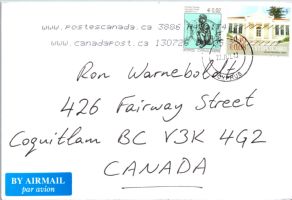 www.postescanada.ca 3886
www.canadapost.ca 130726
€0,02
Ron Warneboldt
426 Fairway Street
Coquitlam BC V3K 4G2
CANADA
BY AIRMAIL
par avion